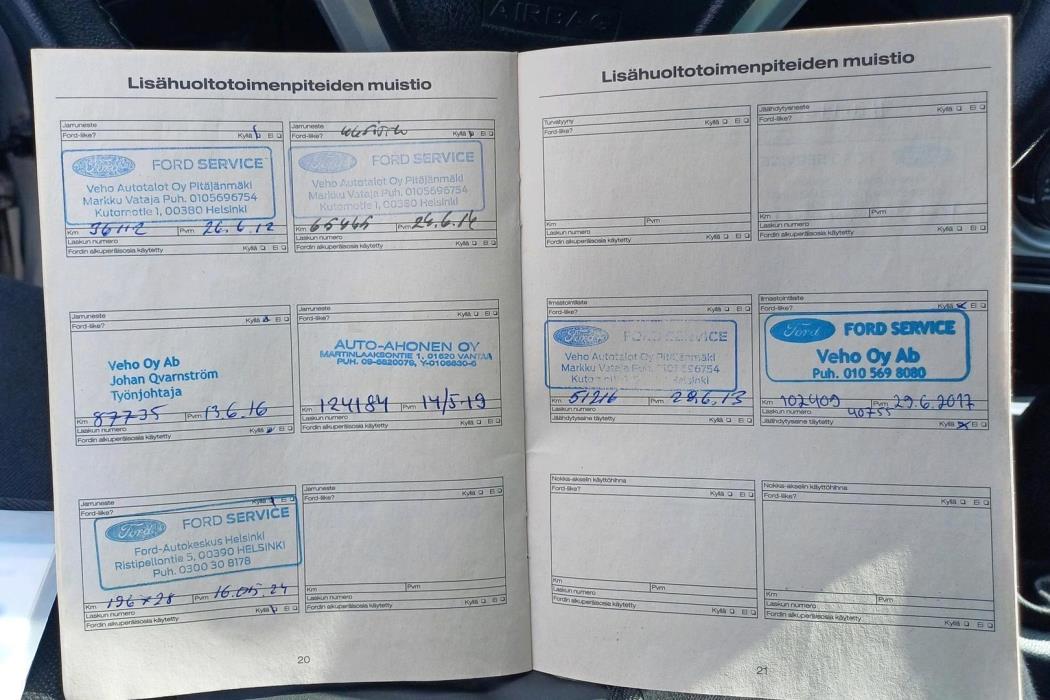 AIRBAG
Lisähuoltotoimenpiteiden muistio
Jarruneste
Ford-liike? Kyllä Ei
Ford FORD SERVICE
Veho Autotalot Oy Pitäjänmäki
Markku Vataja Puh. 0105696754
Kutomotie 1, 00380 Helsinki
Km 36112 Pvm 26.6.12
Laskun numero
Fordin alkuperäisosia käytetty Kyllä Ei
Jarruneste
Ford-liike? Kyllä Ei
Ford FORD SERVICE
Veho Autotalot Oy Pitäjänmäki
Markku Vataja Puh. 0105696754
Kutomotie 1, 00380 Helsinki
Km 65465 Pvm 24.6.14
Laskun numero
Fordin alkuperäisosia käytetty Kyllä Ei
Jarruneste
Ford-liike? Kyllä Ei
Veho Oy Ab
Johan Qvarnström
Työnjohtaja
Km 87735 Pvm 13.6.16
Laskun numero
Fordin alkuperäisosia käytetty Kyllä Ei
Jarruneste
Ford-liike? Kyllä Ei
AUTO-AHONEN OY
MARTINLAAKSONTIE 1, 01620 VANTAA
PUH. 09-6820076, Y-0106630-6
Km 124184 Pvm 14/5-19
Laskun numero
Fordin alkuperäisosia käytetty Kyllä Ei
Jarruneste
Ford-liike? Kyllä Ei
Ford FORD SERVICE
Ford-Autokeskus Helsinki
Ristipellontie 5, 00390 HELSINKI
Puh. 0300 30 8178
Km 196728 Pvm 16.05.24
Laskun numero
Fordin alkuperäisosia käytetty Kyllä Ei
Jarruneste
Ford-liike? Kyllä Ei
Km Pvm
Laskun numero
Fordin alkuperäisosia käytetty Kyllä Ei
20
Lisähuoltotoimenpiteiden muistio
Turvatyyny
Ford-liike? Kyllä Ei
Km Pvm
Laskun numero
Fordin alkuperäisosia käytetty Kyllä Ei
Jäähdytysneste
Ford-liike? Kyllä Ei
Km Pvm
Laskun numero
Fordin alkuperäisosia käytetty Kyllä Ei
Ilmastointilaite
Ford-liike? Kyllä Ei
Ford FORD SERVICE
Veho Autotalot Oy Pitäjänmäki
Markku Puh.
Helsinki
Km 51216 Pvm 28.6.13
Laskun numero
Jäähdytysaine täytetty Kyllä Ei
Ilmastointilaite
Ford-liike? Kyllä Ei
Ford FORD SERVICE
Veho Oy Ab
Puh. 010 569 8080
Km 102409 Pvm 29.6.2017
Laskun numero 40755
Jäähdytysaine täytetty Kyllä Ei
Nokka-akselin käyttöhihna
Ford-liike? Kyllä Ei
Km Pvm
Laskun numero
Fordin alkuperäisosia käytetty Kyllä Ei
Nokka-akselin käyttöhihna
Ford-liike? Kyllä Ei
Km Pvm
Laskun numero
Fordin alkuperäisosia käytetty Kyllä Ei
21